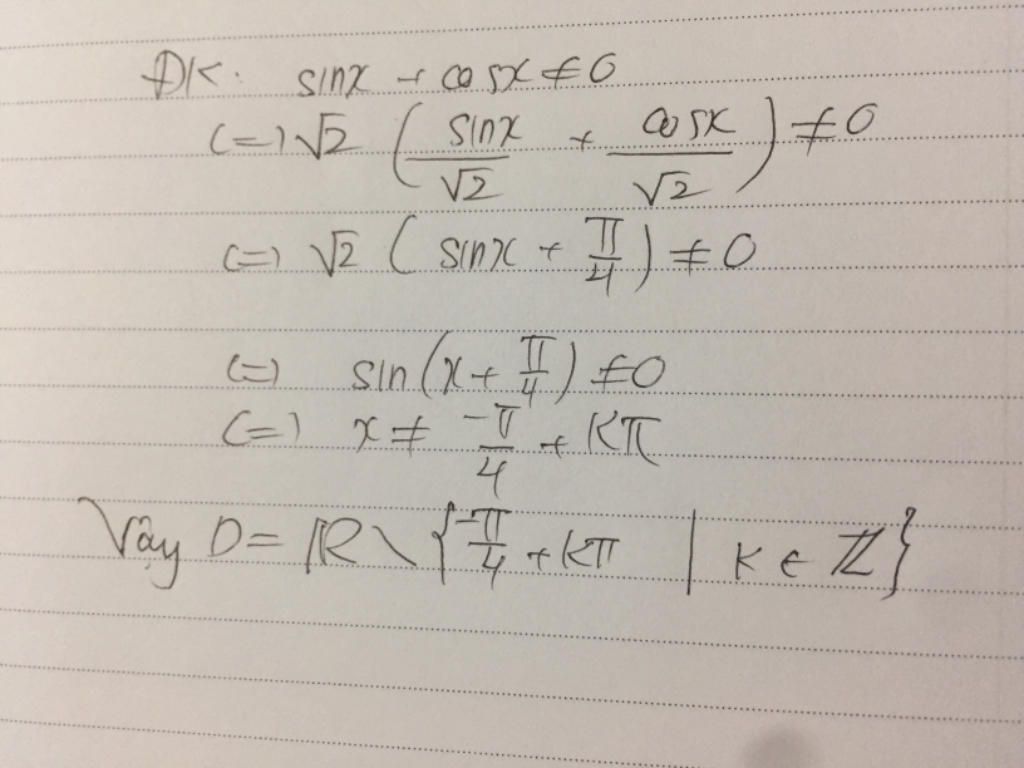 ĐK: sinx + cosx ≠ 0
(=) √2 (sinx/√2 + cosx/√2) ≠ 0
(=) √2 (sinx + π/4) ≠ 0
(=) sin(x + π/4) ≠ 0
(=) x ≠ -π/4 + Kπ
Vậy D = ℝ \ {-π/4 + kπ | k ∈ ℤ}